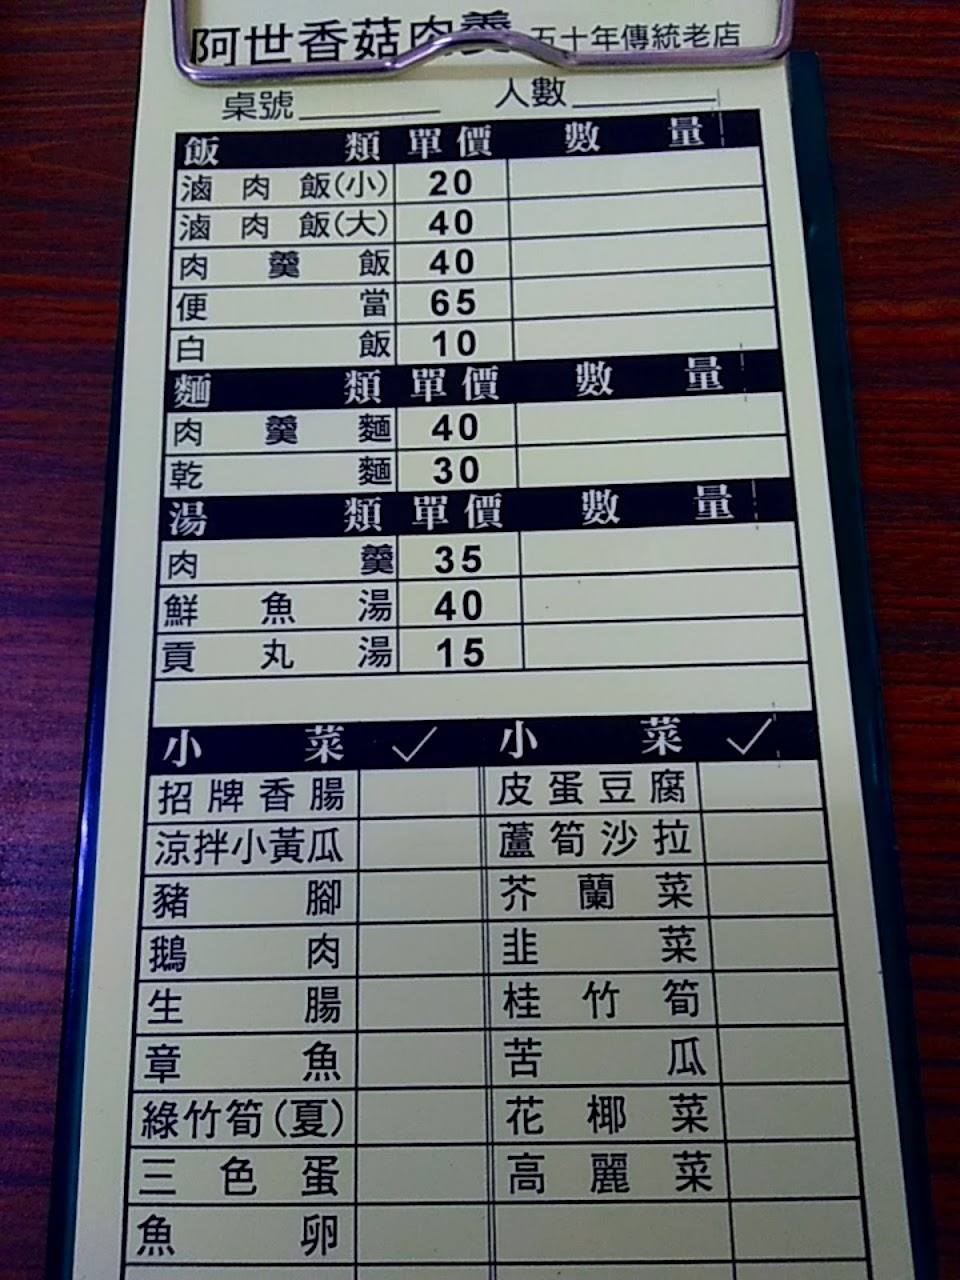 阿世香菇肉羹 五十年傳統老店
桌號 人數
飯類 單價 數量
滷肉飯(小) 20
滷肉飯(大) 40
肉羹飯 40
便當 65
白飯 10
麵類 單價 數量
肉羹麵 40
乾麵 30
湯類 單價 數量
肉羹 35
鮮魚湯 40
貢丸湯 15
小菜 ✓ 小菜 ✓
招牌香腸 皮蛋豆腐
涼拌小黃瓜 蘆筍沙拉
豬腳 芥蘭菜
鵝肉 韭菜
生腸 桂竹筍
章魚 苦瓜
綠竹筍(夏) 花椰菜
三色蛋 高麗菜
魚卵